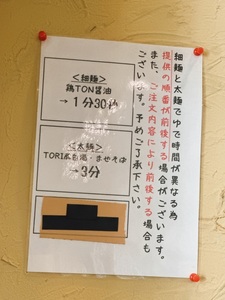 細麺と太麺でゆで時間が異なる為
提供の順番が前後する場合がございます。
また、ご注文内容により前後する場合も
ございます。予めご了承下さい。
<細麺>
鶏TON醤油
→1分30秒
<太麺>
TORI・まぜそば
→3分